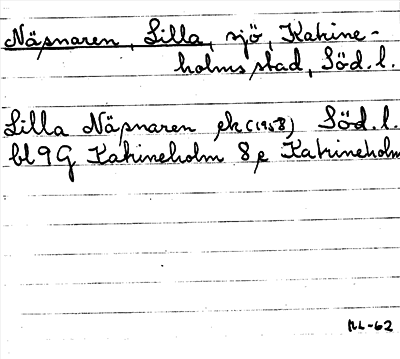 Näsnaren, Lilla, sjö, Katrine-
holms stad, Söd. l.
Lilla Näsnaren ek (1958) Söd. l.
bl 9G Katrineholm 8e Katrineholm
RL-62